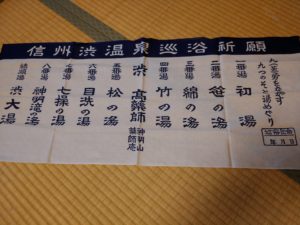 信州渋温泉巡浴祈願
九つのそと湯めぐり
一番湯 初湯
二番湯 笹の湯
三番湯 綿の湯
四番湯 竹の湯
渋 高薬師
五番湯 松の湯
六番湯 目洗の湯
七番湯 七操の湯
八番湯 神明滝の湯
結願湯 渋大湯
年月日